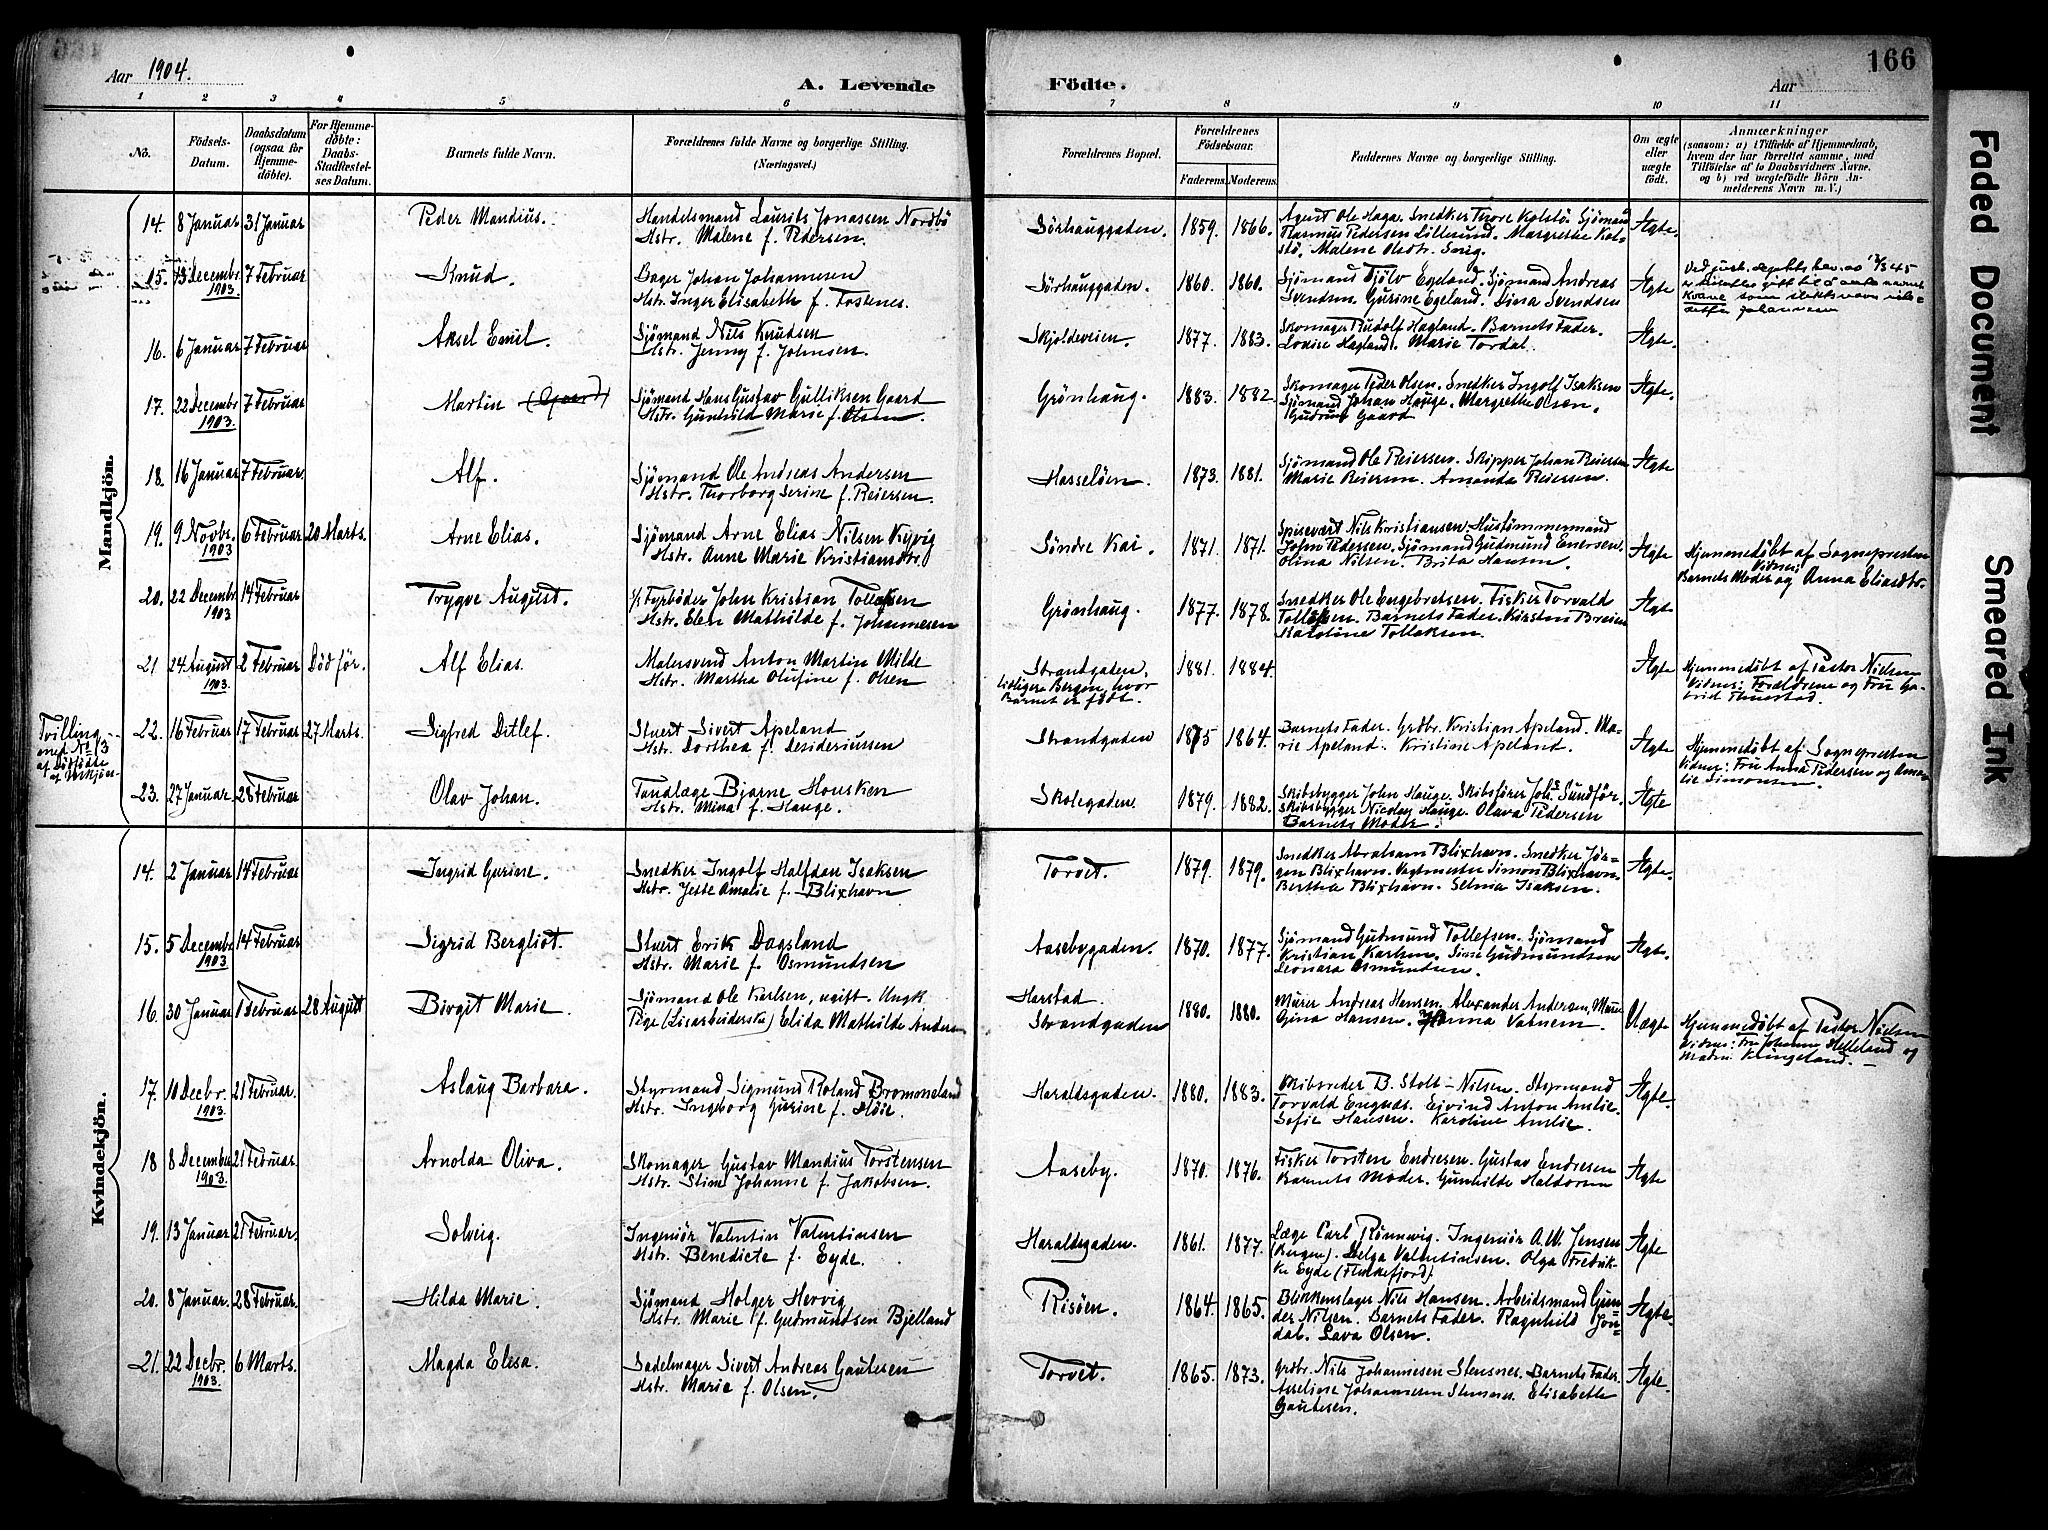 166
Aar 1904.
A. Levende
Födte.
Aar
1 2 3 4 5 6 7 8 9 10 11
No.
Födsels-
Datum.
Daabsdatum
(ogsaa for
Hjemme-
döbte).
For Hjemme-
döbte:
Daabs-
Stadfæstel-
ses Datum.
Barnets fulde Navn.
Forældrenes fulde Navne og borgerlige Stilling.
(Næringsvei.)
Forældrenes Bopæl.
Forældrenes
Födselsaar.
Faderens. Moderens.
Faddernes Navne og borgerlige Stilling.
Om ægte
eller
uægte
födt.
Anmærkninger
(saasom: a) i Tilfælde af Hjemmedaab,
hvem der har forrettet samme, med
Tilföielse af to Daabsvidners Navne,
og b) ved uægtefödte Börn An-
melderens Navn m. V.)
Mandkjön.
14. 8 Januar 31 Januar Peder Mandius. Handelsmand Laurits Jonassen Nordbö
Hstr. Malene f. Pedersen. Sörhauggaden. 1859. 1866. Agent Ole Haga. Snedker Thore Kolstö. Sjömand
Rasmus Pedersen Lillesund. Margrethe Kol-
stö. Malene Olsdtr. Ægte.
15. 13 Decembr. 1903. 7 Februar Knud. Bager Johan Johannesen
Hstr. Inger Elisabeth f. Fosenes. Sörhauggaden. 1860. 1860. Sjömand Tjölv Egeland. Sjömand Andreas
Svendsen. Gurine Egeland. Dina Svendsen Ægte
Kvave som slektsnavn
Johannesen
16. 6 Januar 7 Februar Aksel Emil. Sjömand Nils Knudsen
Hstr. Jenny f. Johnsen. Skjoldeveien. 1877. 1883. Skomager Rudolf Hagland. Barnets Fader.
Louise Hagland. Marie Tordal. Ægte.
17. 22 Decembr 1903. 7 Februar Martin (Gaard) Sjömand Hans Gustav Gulliksen Gaard
Hstr. Gunhild Marie f. Olsen. Grønhaug. 1883. 1882 Skomager Peder Olsen. Snedker Ingolf Isaksen
Sjömand Johan Hauge. Margrethe Olsen.
Gudrun Gaard Ægte.
18. 16 Januar 7 Februar. Alf. Sjömand Ole Andreas Andersen
Hstr. Thorborg Serine f. Reiersen. Hasselöen. 1873. 1881. Sjömand Ole Reiersen. Skipper Johan Reiersen
Marie Reiersen. Amanda Reiersen. Ægte
19. 9 Novbr. 1903 6 Februar 20 Marts. Arne Elias. Sjömand Arne Elias Nilsen Kyvig
Hstr. Anne Marie Kristiansdtr. Söndre Kai. 1871. 1871. Spisevært Nils Kristiansen. Hustömmermand
John Pedersen. Sjömand Gudmund Enersen.
Olina Nilsen. Brita Hansen. Ægte Hjemmedöbt af Sognepresten
Vidner:
Barnets Moder og Anna Eliasdtr.
20. 22 Decembr 1903 14 Februar Trygve August. Fyrböder John Kristian Tollaksen
Hstr. Elen Mathilde f. Johannesen Grønhaug. 1877. 1878. Snedker Ole Engebretsen. Fisker Torvald
Tollaksen. Barnets Fader. Kirsten Breien
Karoline Tollaksen. Ægte
21 24 August 1903 2 Februar Död för. Alf Elias. Malersvend Anton Martin Milde
Hstr. Martha Olufine f. Olsen Strandgaden.
tidligere Bergen, hvor
Barnet er födt. 1881. 1884. Ægte Hjemmedöbt af Pastor Nielsen
Vidner: Forældrene og Fru
Tvilling
med No 3
af Dödfödte
22. 16 Februar 17 Februar 27 Marts. Sigfred Ditlef. Stuert Sivert Apeland
Hstr. Dorthea f. Desideriussen Strandgaden 1875 1864. Barnets Fader. Grdbr. Kristian Apeland. Ma-
rie Apeland. Kristine Apeland. Ægte Hjemmedöbt af Sognepresten
Vidner: Fru Anna Pedersen og Ama-
lie Simonsen.
23. 27 Januar. 28 Februar Olav Johan. Tandlæge Bjarne Housken
Hstr. Mina f. Hauge. Skolegaden. 1879. 1882. Skibsbygger John Hauge. Skibsförer Joh. Sundför.
Skibsbygger Nicolay Hauge. Olava Pedersen
Barnets Moder. Ægte
Kvindekjön.
14. 2 Januar 14 Februar Ingrid Gurine. Snedker Ingolf Halfdan Isaksen
Hstr. Jette Amalie f. Blixhavn Torvet. 1879. 1879. Snedker Abraham Blixhavn. Snedker Jör-
gen Blixhavn. Vagtmester Simon Blixhavn.
Berthea Blixhavn. Selma Isaksen. Ægte.
15. 5 Decembr 1903 14 Februar Sigrid Bergliot. Stuert Erik Dagsland
Hstr. Marie f. Osmundsen Aasebygaden. 1870. 1877. Sjömand Gudmund Tollefsen. Sjömand
Kristian Karlsen. Sine Gudmundsen
Leonara Osmundsen. Ægte.
16. 30 Januar 1 Februar 28 August Birgit Marie. Sjömand Ole Karlsen, ugift. Ungk.
Pige (Lisarbeiderske) Elida Mathilde Andersen Harstad.
Strandgaden 1880. 1880. Murer Andreas Hansen. Alexander Andersen, Murer
Gina Hansen. Hanna Vatnem. Uægte Hjemmedöbt af Pastor Nielsen
Vidner: Fru Johanne Helleland og
Madm. Klingeland.
17. 10 Decbr. 1903. 21 Februar. Aslaug Barbara. Styrmand Sigmund Roland Brommeland
Hstr. Ingeborg Gurine f. Höie. Haraldsgaden. 1880. 1883. Skibsreder B. Stolt-Nilsen. Styrmand
Torvald Enguds. Ejvind Anton Amlie.
Sofie Hansen. Karoline Amlie. Ægte.
18 8 Decembr 1903. 21 Februar. Arnolda Oliva. Skomager Gustav Mandius Torstensen
Hstr. Stine Johanne f. Jakobsen. Aaseby. 1870. 1876. Fisker Torsten Endresen. Gustav Endresen
Barnets Moder. Gunhilde Haldorsen Ægte
19. 13 Januar 21 Februar. Solveig. Ingeniör Valentin Valentinsen
Hstr. Benedicte f. Eyde. Haraldsgaden. 1861. 1877. Læge Carl Rönnevig. Ingeniör A.W. Jensen
(Bergen). Helga Valentinsen. Olga Fredrik-
ke Eyde (Flekkefjord) Ægte
20. 8 Januar. 28 Februar. Hilda Marie. Sjömand Holger Hervig
Hstr. Marie f. Gudmundsen Bjelland Risöen. 1864. 1865. Blikkenslager Nils Hansen. Arbeidsmand Gun-
der Nilsen. Barnets Fader. Ragnhild Jön-
dal. Lava Olsen. Ægte.
21. 22 Decbr. 1903. 6 Marts. Magda Elisa. Sadelmager Sivert Andreas Gautesen
Hstr. Marie f. Olsen. Torvet. 1865. 1873. Grdbr. Nils Johannesen Stensnes. Barnets Fader.
Aseline Johannesen Stensnes. Elisabeth
Gautesen. Ægte.
Faded Document
Smeared Ink